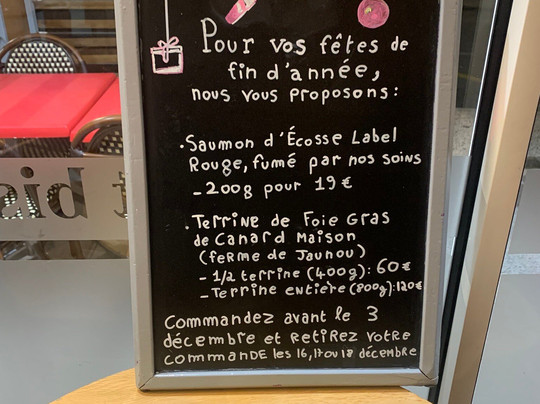 Pour vos fêtes de
fin d'année,
nous vous proposons :
. Saumon d'Écosse Label
Rouge, fumé par nos soins
- 200g pour 19 €
. Terrine de Foie Gras
de Canard Maison
(ferme de Jaunou)
- 1/2 terrine (400g) : 60€
- Terrine entière (800g) : 120€
Commandez avant le 3
décembre et retirez votre
commande les 16, 17 ou 18 décembre